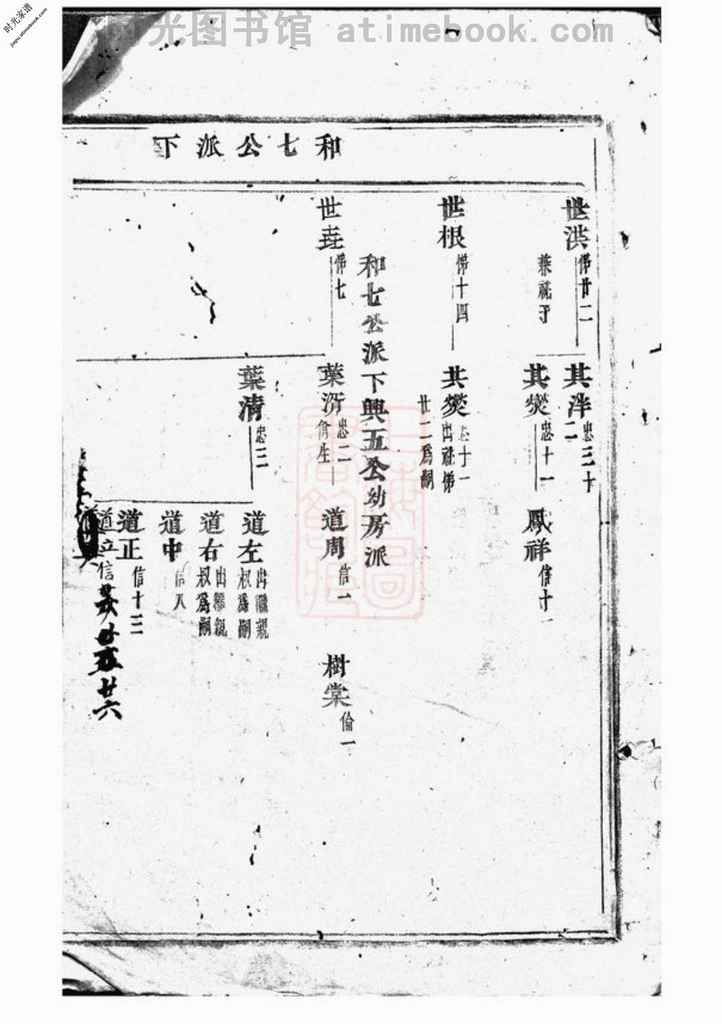 时光家谱
jiapu.atimebook.com
时光图书馆 atimebook.com
和七公派下
世洪 悌廿二
其泮 忠三十二
兼祧子
其熒 忠十一
鳳祥 信十一
世根 悌十四
其熒 忠十一 出祧悌廿二爲嗣
和七公派下興五公幼房派
世垚 悌七
葉滂 忠二 貪生
道周 信一
樹棠 倫一
葉清 忠三
道左 出繼親叔爲嗣
道右 出繼親叔爲嗣
道中 信八
道正 信十三
道立 信